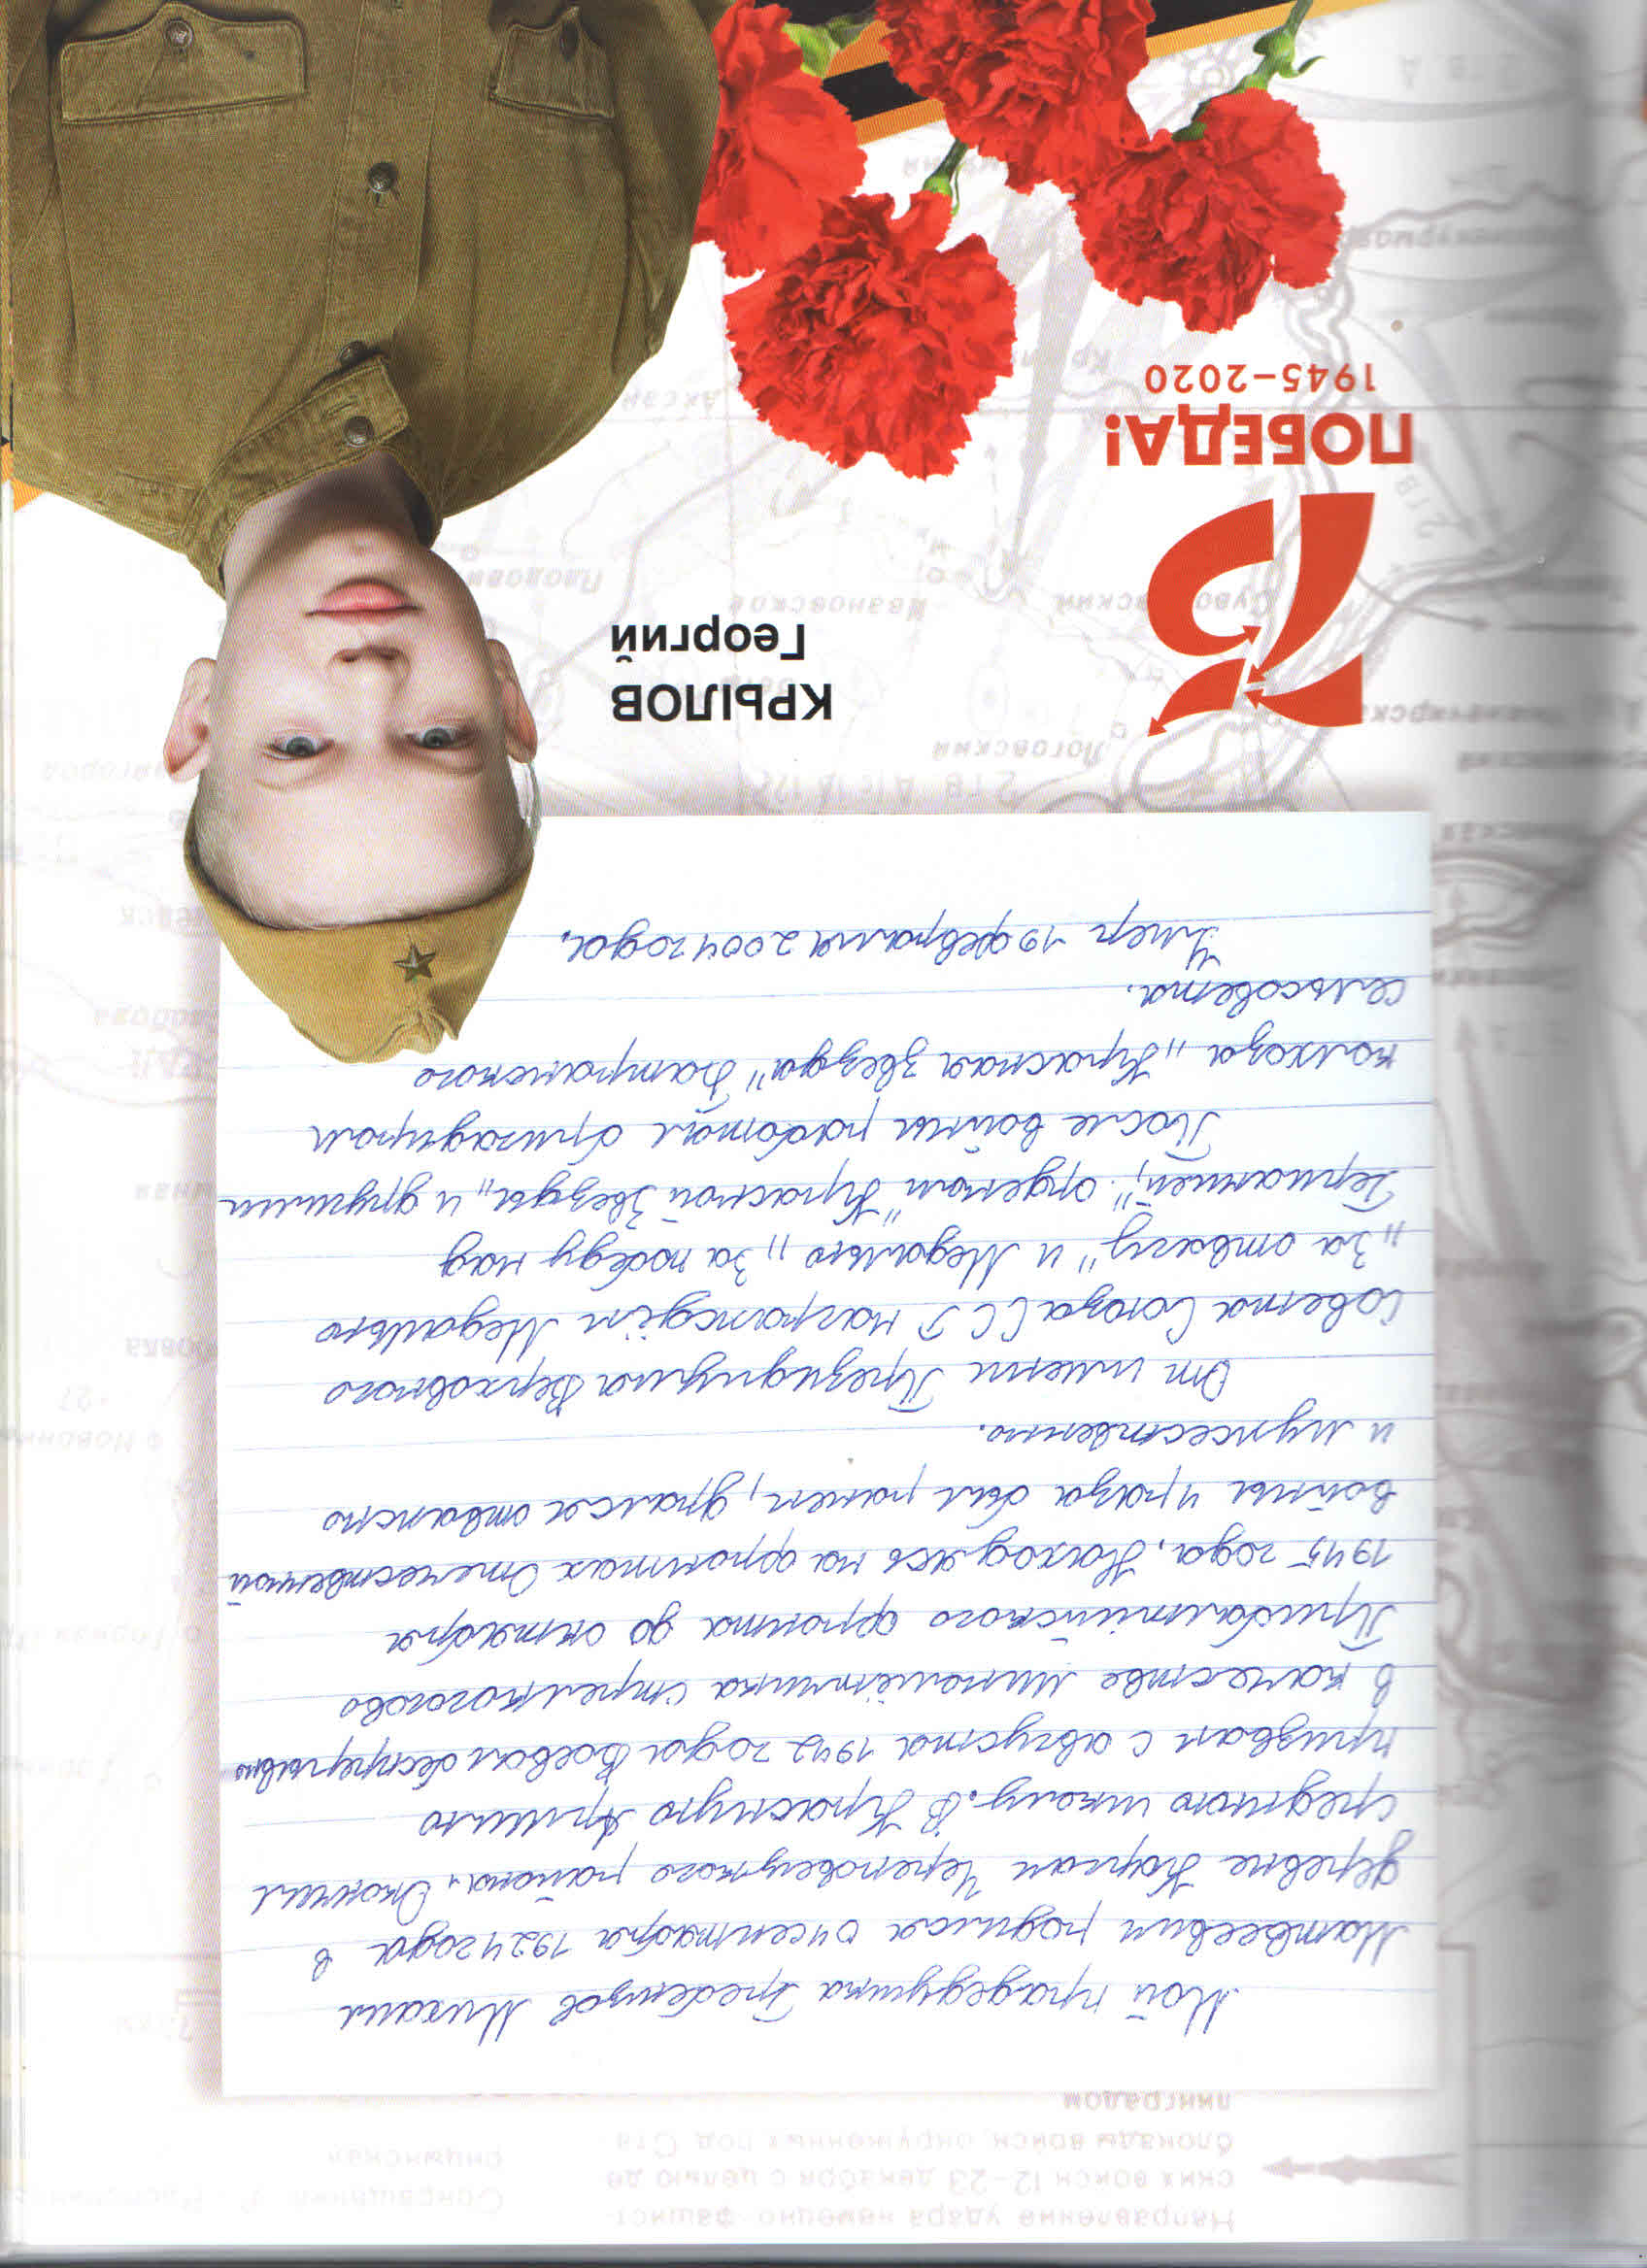 Направление удара немецко-фашист-
ских войск 12–23 декабря с целью де-
блокады войск, окруженных под Ста-
линградом
Мой прадедушка Гребенцов Михаил
Матвеевич родился 04 сентября 1924 года в
деревне Каргач Череповецкого района. Окончил
среднюю школу. В Красную Армию
призван с августа 1942 года Воевал беспрерывно
в качестве миномётчика стрелкогогово
Прибалтийского фронта до октября
1945 года. Находясь на фронтах Отечественной
войны 4 раза был ранен, дрался отважно
и мужественно.
От имени Президиума Верховного
Совета Союза ССР награждён Медалью
„За отвагу" и Медалью „За победу над
Германией," орденом "Красной Звезды„ и другими
После войны работал бригадиром
колхоза „Красная звезда" Батранского
сельсовета.
Умер 19 февраля 2004 года.
Логовский
КРЫЛОВ
Георгий
75
Ивановское
ПОБЕДА!
1945–2020